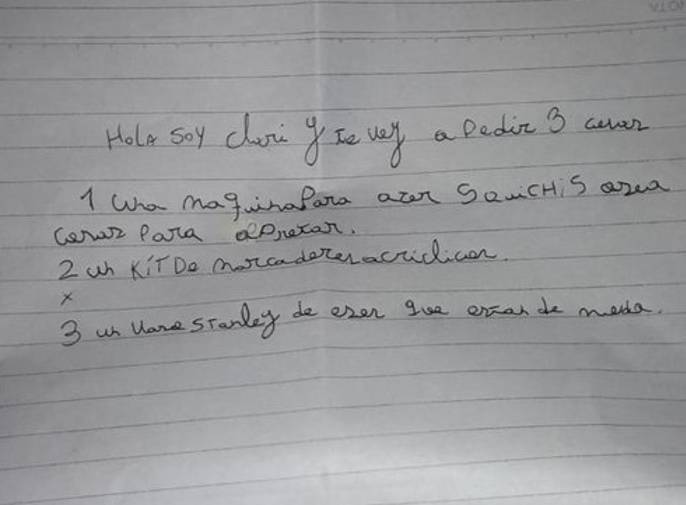 Hola soy clari y te voy a Pedir 3 cosas
1 una maquina Para aser SquiCHiS osea
cosas Para apretar.
2 un KiT De marcadores acriclicos.
x
3 un vaso STanley de esos que estan de moda.